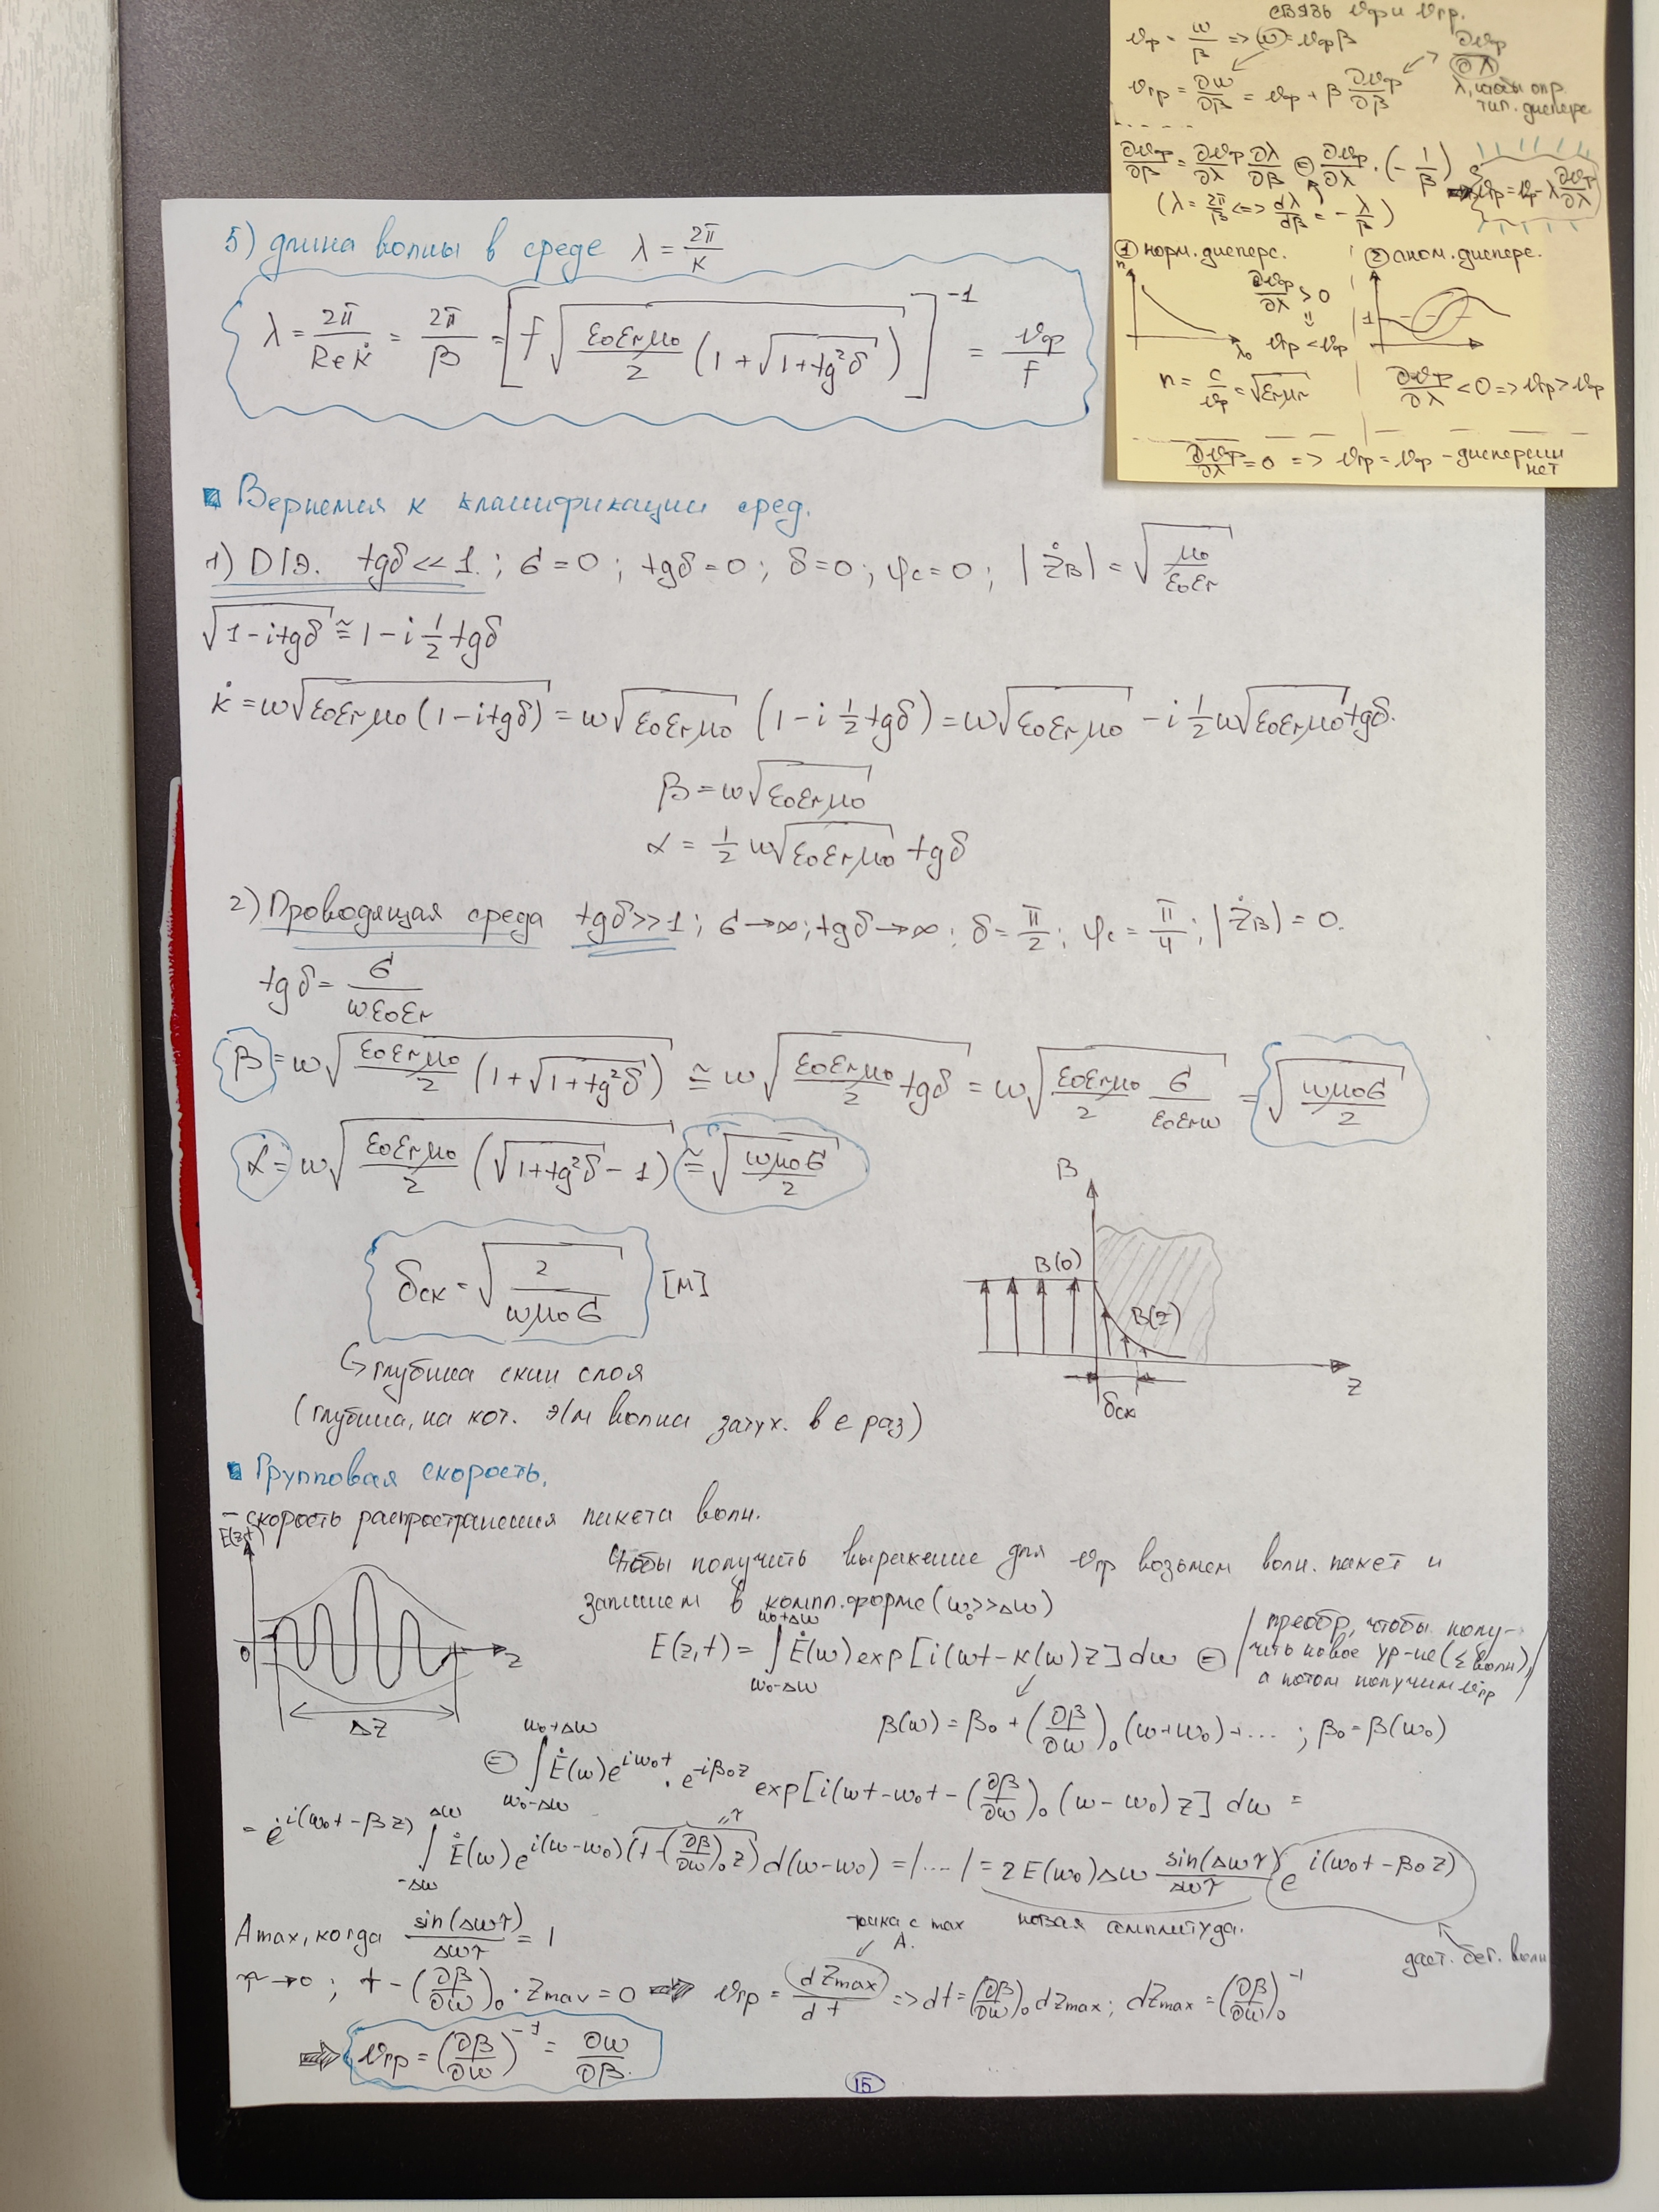 связь vф и vгр.
vф = ω/β => ω = vф β
vгр = ∂ω/∂β = vф + β ∂vф/∂β
∂vф/∂λ
λ, чтобы опр.
тип. дисперс
∂vф/∂β = ∂vф/∂λ ∂λ/∂β = ∂vф/∂λ · (- 1/β)
vгр = vф - λ ∂vф/∂λ
(λ = 2π/β <=> dλ/dβ = - λ/β)
① норм. дисперс.
n
λ₀
∂vф/∂λ > 0
vгр < vф
n = c/vф = √εrμr
② аном. дисперс.
1
∂vф/∂λ < 0 => vгр > vф
∂vф/∂λ = 0 => vгр = vф - дисперсии нет
5) длина волны в среде λ = 2π/k
λ = 2π/Re k̇ = 2π/β = [f √(ε₀εrμ₀/2 (1 + √(1+tg²δ)))]⁻¹ = vф/f
Вернемся к классификации сред.
1) D/э. tgδ << 1. ; σ = 0 ; tgδ = 0 ; δ = 0 ; φc = 0 ; |Żв| = √(μ₀/ε₀εr)
√(1 - i tgδ) ≅ 1 - i 1/2 tgδ
k̇ = ω√(ε₀εrμ₀(1 - i tgδ)) = ω√(ε₀εrμ₀) (1 - i 1/2 tgδ) = ω√(ε₀εrμ₀) - i 1/2 ω√(ε₀εrμ₀) tgδ.
β = ω√(ε₀εrμ₀)
α = 1/2 ω√(ε₀εrμ₀) tgδ
2) Проводящая среда tgδ >> 1 ; σ → ∞ ; tgδ → ∞ ; δ = π/2 ; φc = π/4 ; |Żв| = 0.
tgδ = σ/ωε₀εr
β = ω√(ε₀εrμ₀/2 (1 + √(1+tg²δ))) ≅ ω√(ε₀εrμ₀/2 tgδ) = ω√(ε₀εrμ₀/2 σ/ε₀εrω) = √(ωμ₀σ/2)
α = ω√(ε₀εrμ₀/2 (√(1+tg²δ) - 1)) ≅ √(ωμ₀σ/2)
δск = √(2/ωμ₀σ) [м]
↳ глубина скин слоя
(глубина, на кот. э/м волна затух. в e раз)
B
B(0)
B(z)
z
δск
Групповая скорость.
- скорость распространения пакета волн.
E(z,t)
0
z
Δz
Чтобы получить выражение для vгр возьмем волн. пакет и
запишем в компл. форме (ω₀ >> Δω)
E(z,t) = ∫_{ω₀-Δω}^{ω₀+Δω} Ė(ω) exp[i(ωt - k(ω)z] dω =
/преобр, чтобы полу-
чить новое ур-ие (Σ волн),
а потом получим vгр/
β(ω) = β₀ + (∂β/∂ω)₀ (ω+ω₀) + ... ; β₀ = β(ω₀)
= ∫_{ω₀-Δω}^{ω₀+Δω} Ė(ω) e^{iω₀t} · e^{-iβ₀z} exp[i(ωt - ω₀t - (∂β/∂ω)₀ (ω - ω₀)z] dω =
= e^{i(ω₀t - βz)} ∫_{-Δω}^{Δω} Ė(ω) e^{i(ω-ω₀)(t - (∂β/∂ω)₀ z)} d(ω-ω₀) = /..../ = 2E(ω₀)Δω sin(Δωτ)/Δωτ e^{i(ω₀t - β₀z)}
"τ
новая амплитуда.
даст. бег. волн
Amax, когда sin(Δωτ)/Δωτ = 1
точка с max
A.
τ → 0 ; t - (∂β/∂ω)₀ · zmax = 0 ⇒ vгр = dzmax/dt => dt = (∂β/∂ω)₀ dzmax ; dzmax = (∂β/∂ω)₀⁻¹
⇒ vгр = (∂β/∂ω)⁻¹ = ∂ω/∂β.
15